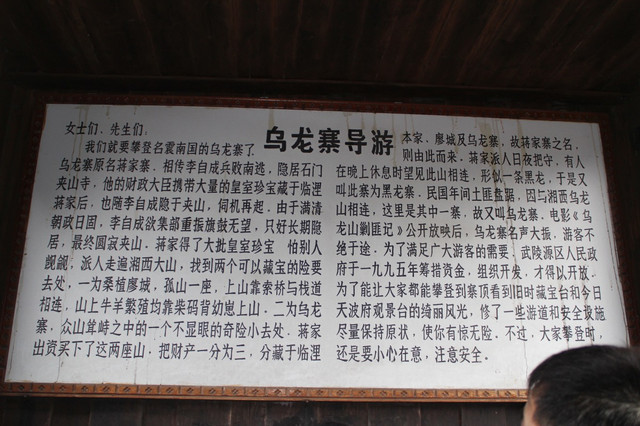 乌龙寨导游
女士们、先生们：
我们就要攀登名震南国的乌龙寨了
乌龙寨原名蒋家寨．相传李自成兵败南逃，隐居石门
夹山寺，他的财政大臣携带大量的皇室珍宝藏于临澧
蒋家后，也随李自成隐于夹山，伺机再起．由于满清
朝政日固，李自成欲集部重振旗鼓无望，只好长期隐
居，最终圆寂夹山．蒋家得了大批皇室珍宝 怕别人
觊觎，派人走遍湘西大山，找到两个可以藏宝的险要
去处，一为桑植廖城，孤山一座，上山靠索桥与栈道
相连，山上牛羊繁殖均靠柴码背幼崽上山．二为乌龙
寨，众山耸峙之中的一个不显眼的奇险小去处．蒋家
出资买下了这两座山．把财产一分为三，分藏于临澧
本家．廖城及乌龙寨，故蒋家寨之名，
则由此而来．蒋家派人日夜把守，有人
在晚上休息时望见此山相连，形似一条黑龙，于是又
叫此寨为黑龙寨．民国年间土匪盘踞，因与湘西乌龙
山相连，这里是其中一寨，故又叫乌龙寨．电影《乌
龙山剿匪记》公开放映后，乌龙寨名声大振，游客不
绝于途．为了满足广大游客的需要，武陵源区人民政
府于一九九五年筹措资金，组织开发，才得以开放．
为了能让大家都能攀登到寨顶看到旧时藏宝台和今日
天波府观景台的绮丽风光，修了一些游道和安全设施
尽量保持原状，使你有惊无险．不过，大家攀登时，
还是要小心在意，注意安全．